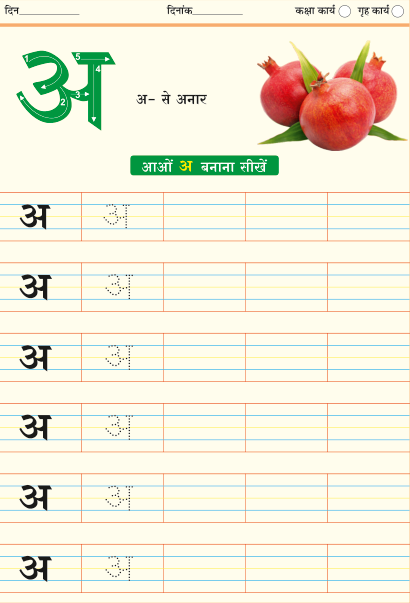 दिन__________ दिनांक__________ कक्षा कार्य गृह कार्य
अ
1 2 3 4 5
अ- से अनार
आओं अ बनाना सीखें
अ अ
अ अ
अ अ
अ अ
अ अ
अ अ